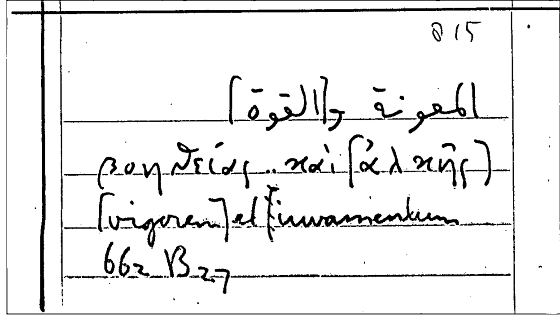 815
المعونة و[القوة]
βοηθείας .. καὶ [ἀλκῆς]
[vigorem] et [iuvamentum
662 B 27